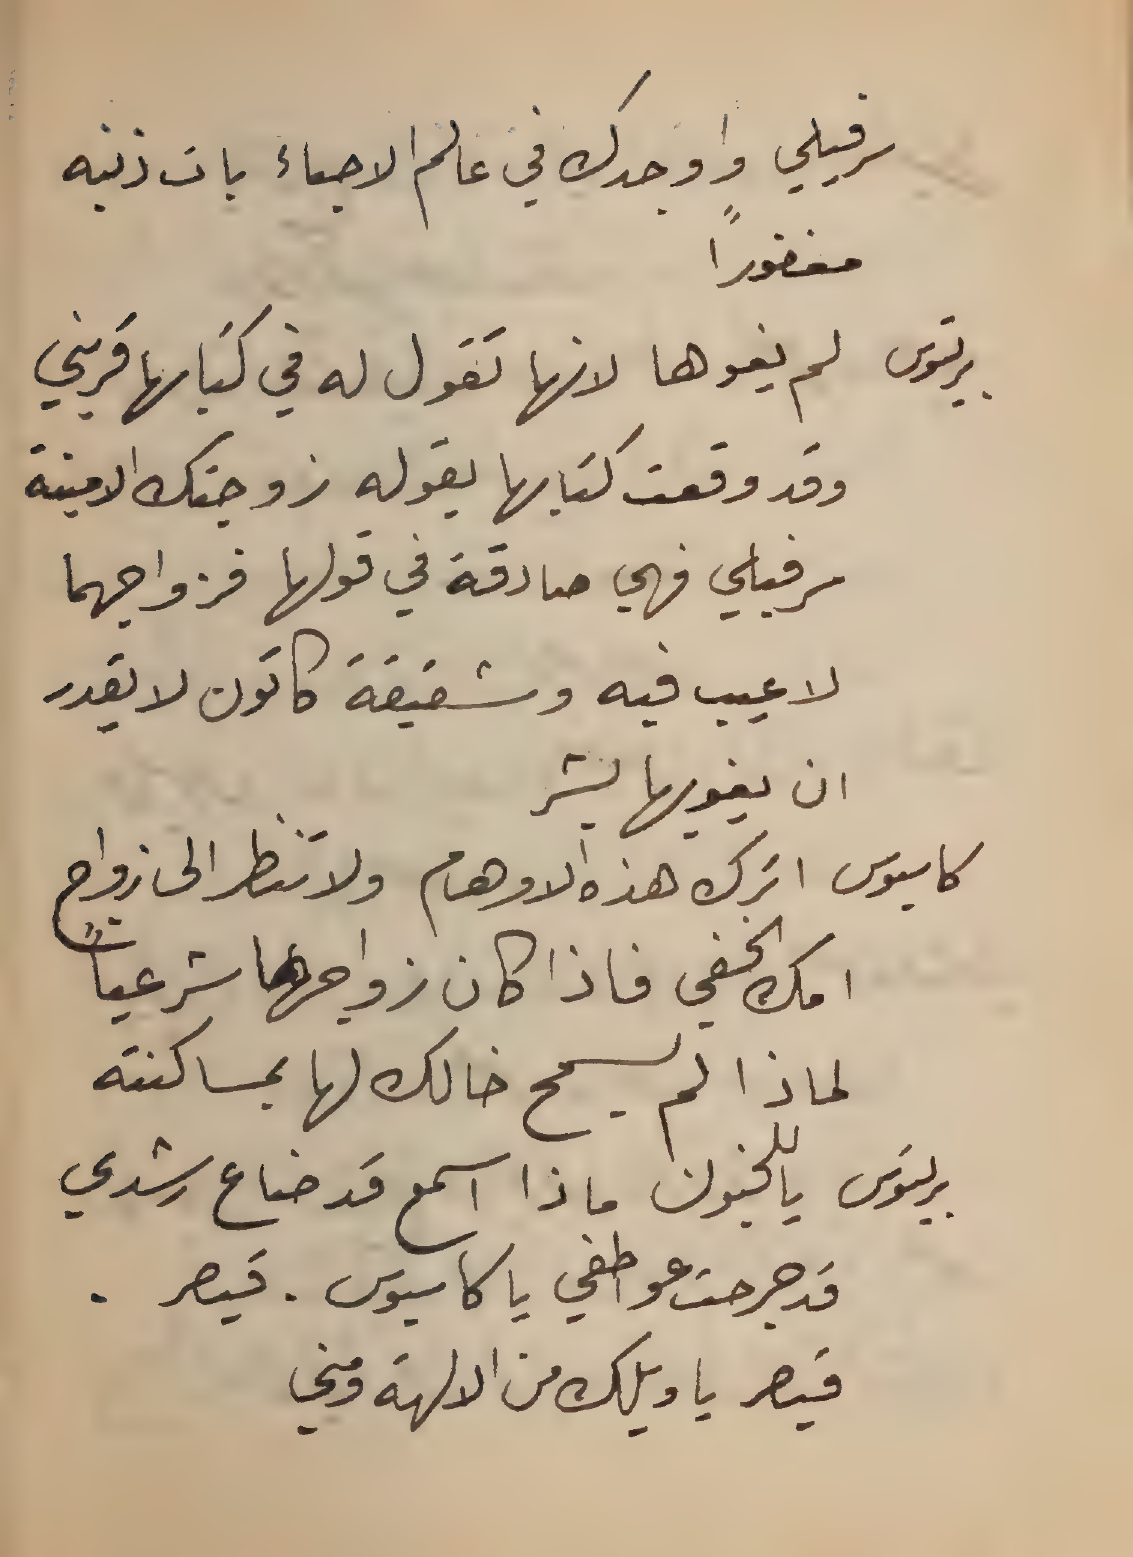 سرفيلي واوجدك في عالم الاحياء بات ذنبه
مغفورًا
بروتوس لم يغوها لانها تقول له في كتابها قريني
وقد وقعت كتابها بقوله زوجتك الامينة
سرفيلي فهي صادقة في قولها فزواجهما
لا عيب فيه وشقيقة كاتون لا يقدر
ان يغويها بشر
كاسيوس اترك هذه الاوهام ولا تنظر الى زواج
امك الخفي فاذا كان زواجهما شرعياً
لماذا لم يسمح خالك لها بمساكنته
بروتوس ياللجنون ماذا اسمع قد ضاع رشدي
قد جرحت عواطفي يا كاسيوس . قيصر .
قيصر يا ويلك من الالهة ومني